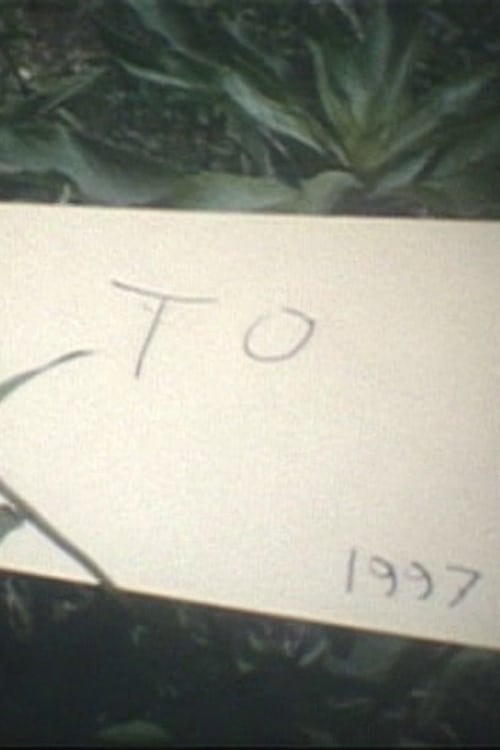 TO
1997